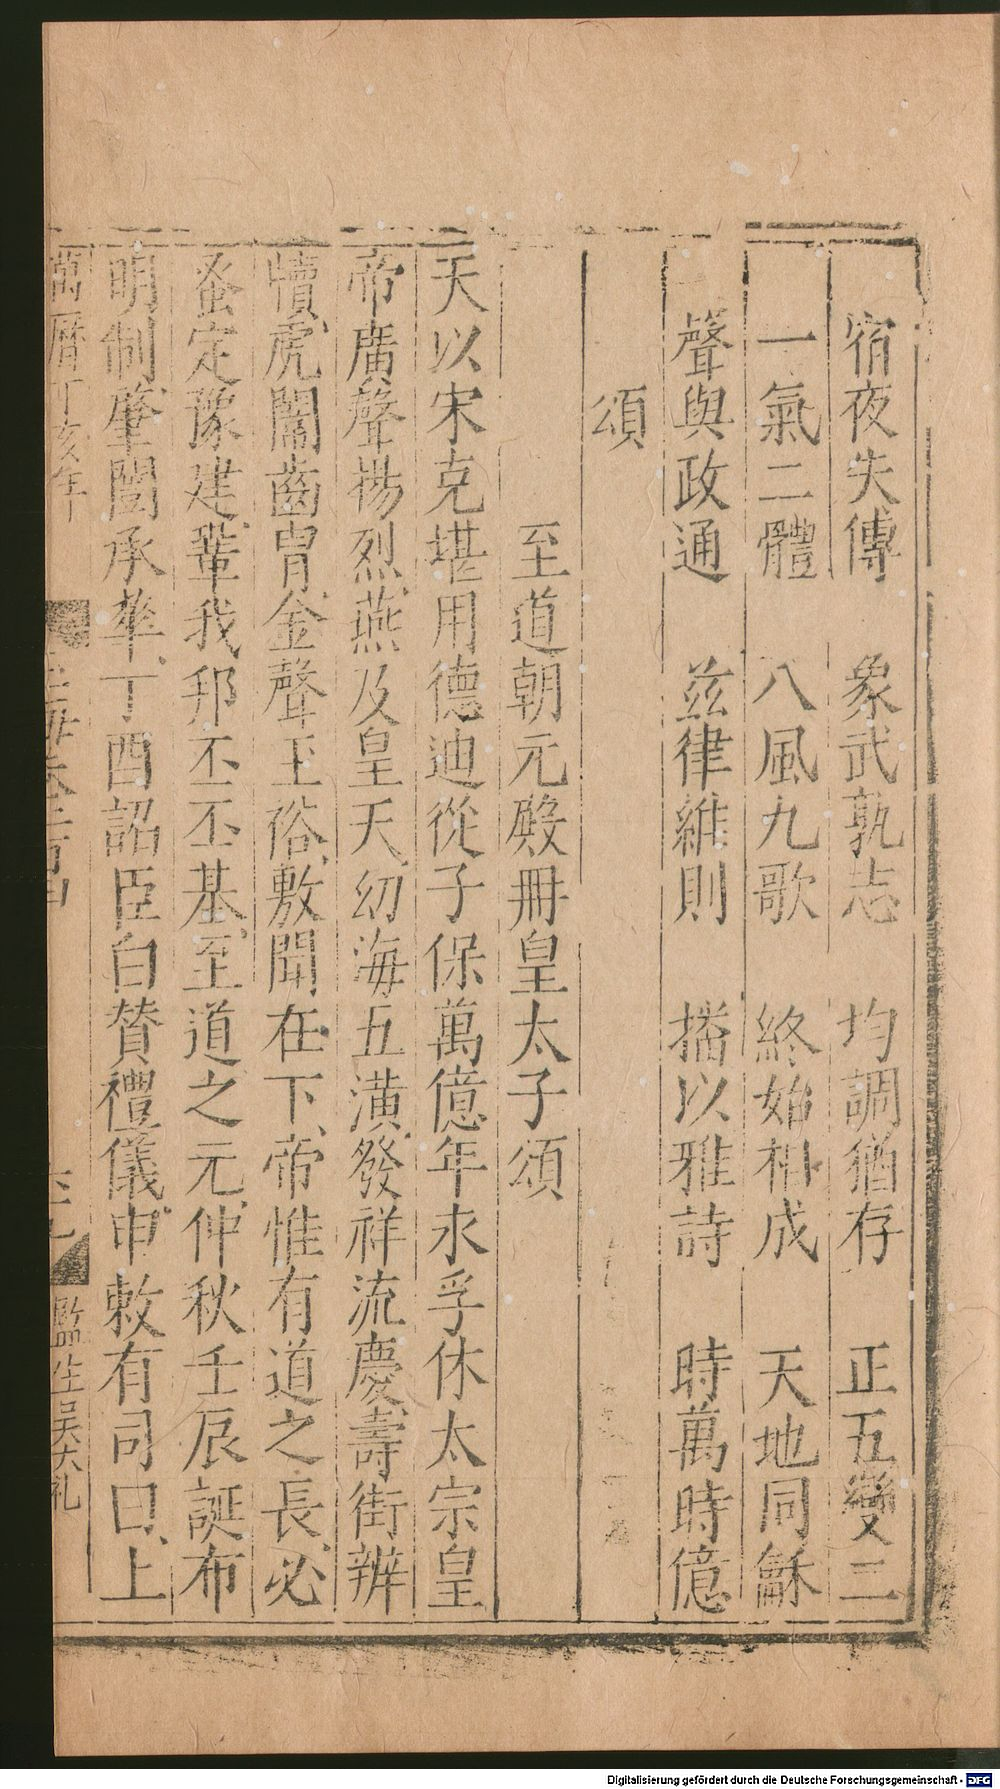 宿夜失傳　象武孰志　均調猶存　正五變二
一氣二體　八風九歌　終始相成　天地同龢
聲與政通　兹律維則　播以雅詩　時萬時億
頌
至道朝元殿冊皇太子頌
天以宋克堪用德迪從子保萬億年永孚休太宗皇
帝廣聲揚烈燕及皇天幼海五潢發祥流慶壽街辨
犢虎闈齒胄金聲玉裕敷聞在下帝惟有道之長必
蚤定豫建鞏我邦丕丕基至道之元仲秋壬辰誕布
明制肇閏承華丁酉詔臣白贊禮儀申敕有司曰上
萬曆丁亥年
監生吳大礼
Digitalisierung gefördert durch die Deutsche Forschungsgemeinschaft - DFG